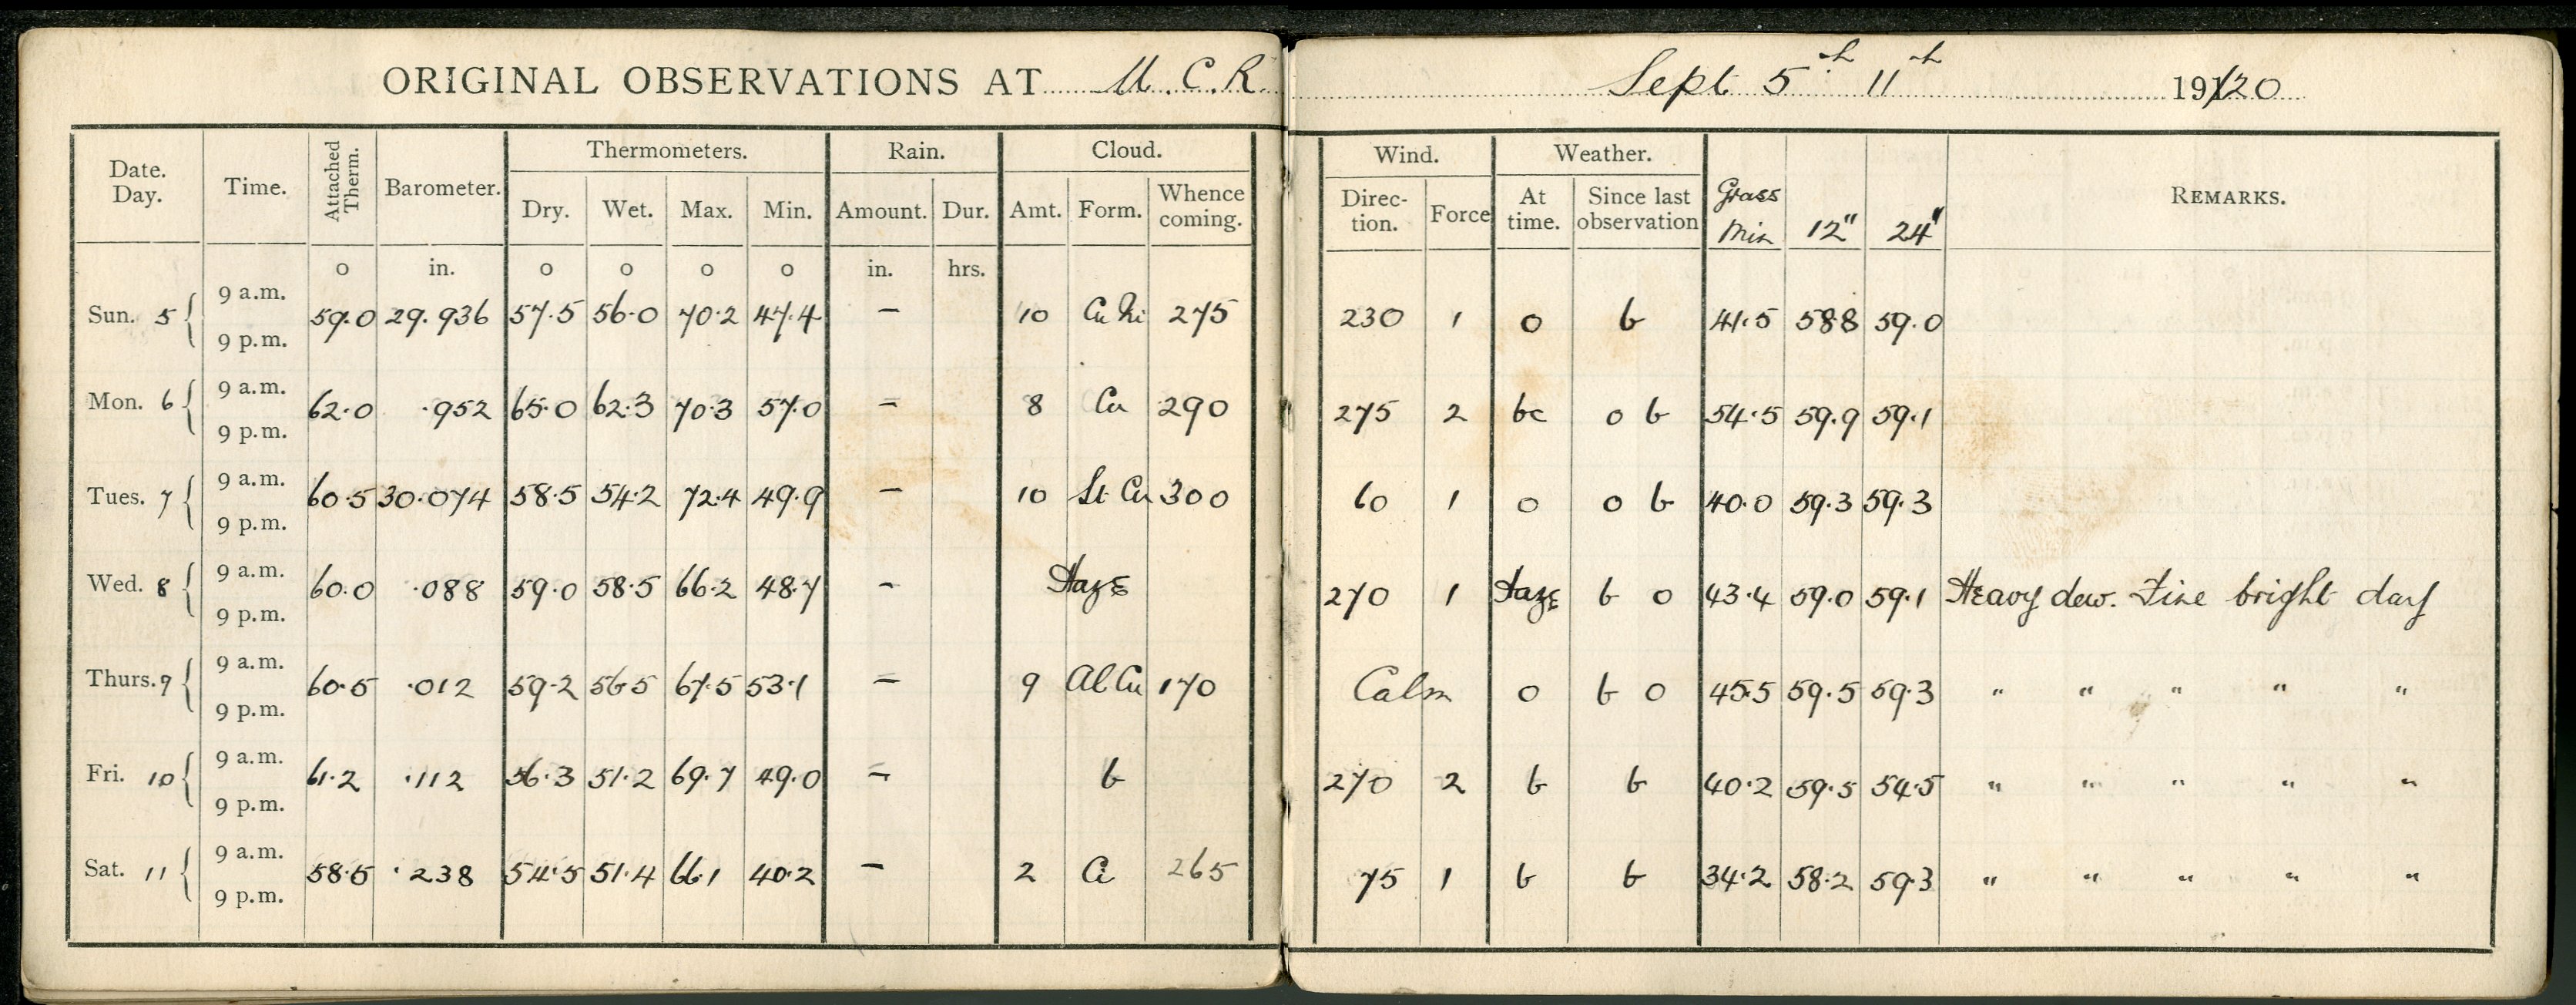 ORIGINAL OBSERVATIONS AT M.C.R. Sept 5th 11th 1920
Date. Day. Time. Attached Therm. Barometer. Thermometers. Rain. Cloud. Wind. Weather. Grass Min 12" 24" REMARKS.
Dry. Wet. Max. Min. Amount. Dur. Amt. Form. Whence coming. Direc-tion. Force At time. Since last observation
o in. o o o o in. hrs.
Sun. 5 9 a.m. 9 p.m. 59.0 29.936 57.5 56.0 70.2 47.4 – 10 Cu Ni 275 230 1 o b 41.5 588 59.0
Mon. 6 9 a.m. 9 p.m. 62.0 .952 65.0 62.3 70.3 57.0 – 8 Cu 290 275 2 bc o b 54.5 59.9 59.1
Tues. 7 9 a.m. 9 p.m. 60.5 30.074 58.5 54.2 72.4 49.9 – 10 St Cu 300 60 1 o o b 40.0 59.3 59.3
Wed. 8 9 a.m. 9 p.m. 60.0 .088 59.0 58.5 66.2 48.7 – Haze 270 1 Haze b o 43.4 59.0 59.1 Heavy dew. Fine bright day
Thurs. 9 9 a.m. 9 p.m. 60.5 .012 59.2 565 67.5 53.1 – 9 Al Cu 170 Calm o b o 45.5 59.5 59.3 " " " " "
Fri. 10 9 a.m. 9 p.m. 61.2 .112 56.3 51.2 69.7 49.0 – b 270 2 b b 40.2 59.5 54.5 " " " " "
Sat. 11 9 a.m. 9 p.m. 58.5 .238 54.5 51.4 66.1 40.2 – 2 Ci 265 75 1 b b 34.2 58.2 59.3 " " " " "